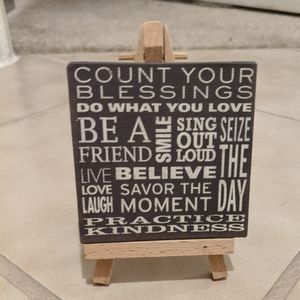 COUNT YOUR
BLESSINGS
DO WHAT YOU LOVE
BE A
FRIEND
SMILE
SING
OUT
LOUD
SEIZE
THE
DAY
LIVE
LOVE
LAUGH
BELIEVE
SAVOR THE
MOMENT
PRACTICE
KINDNESS